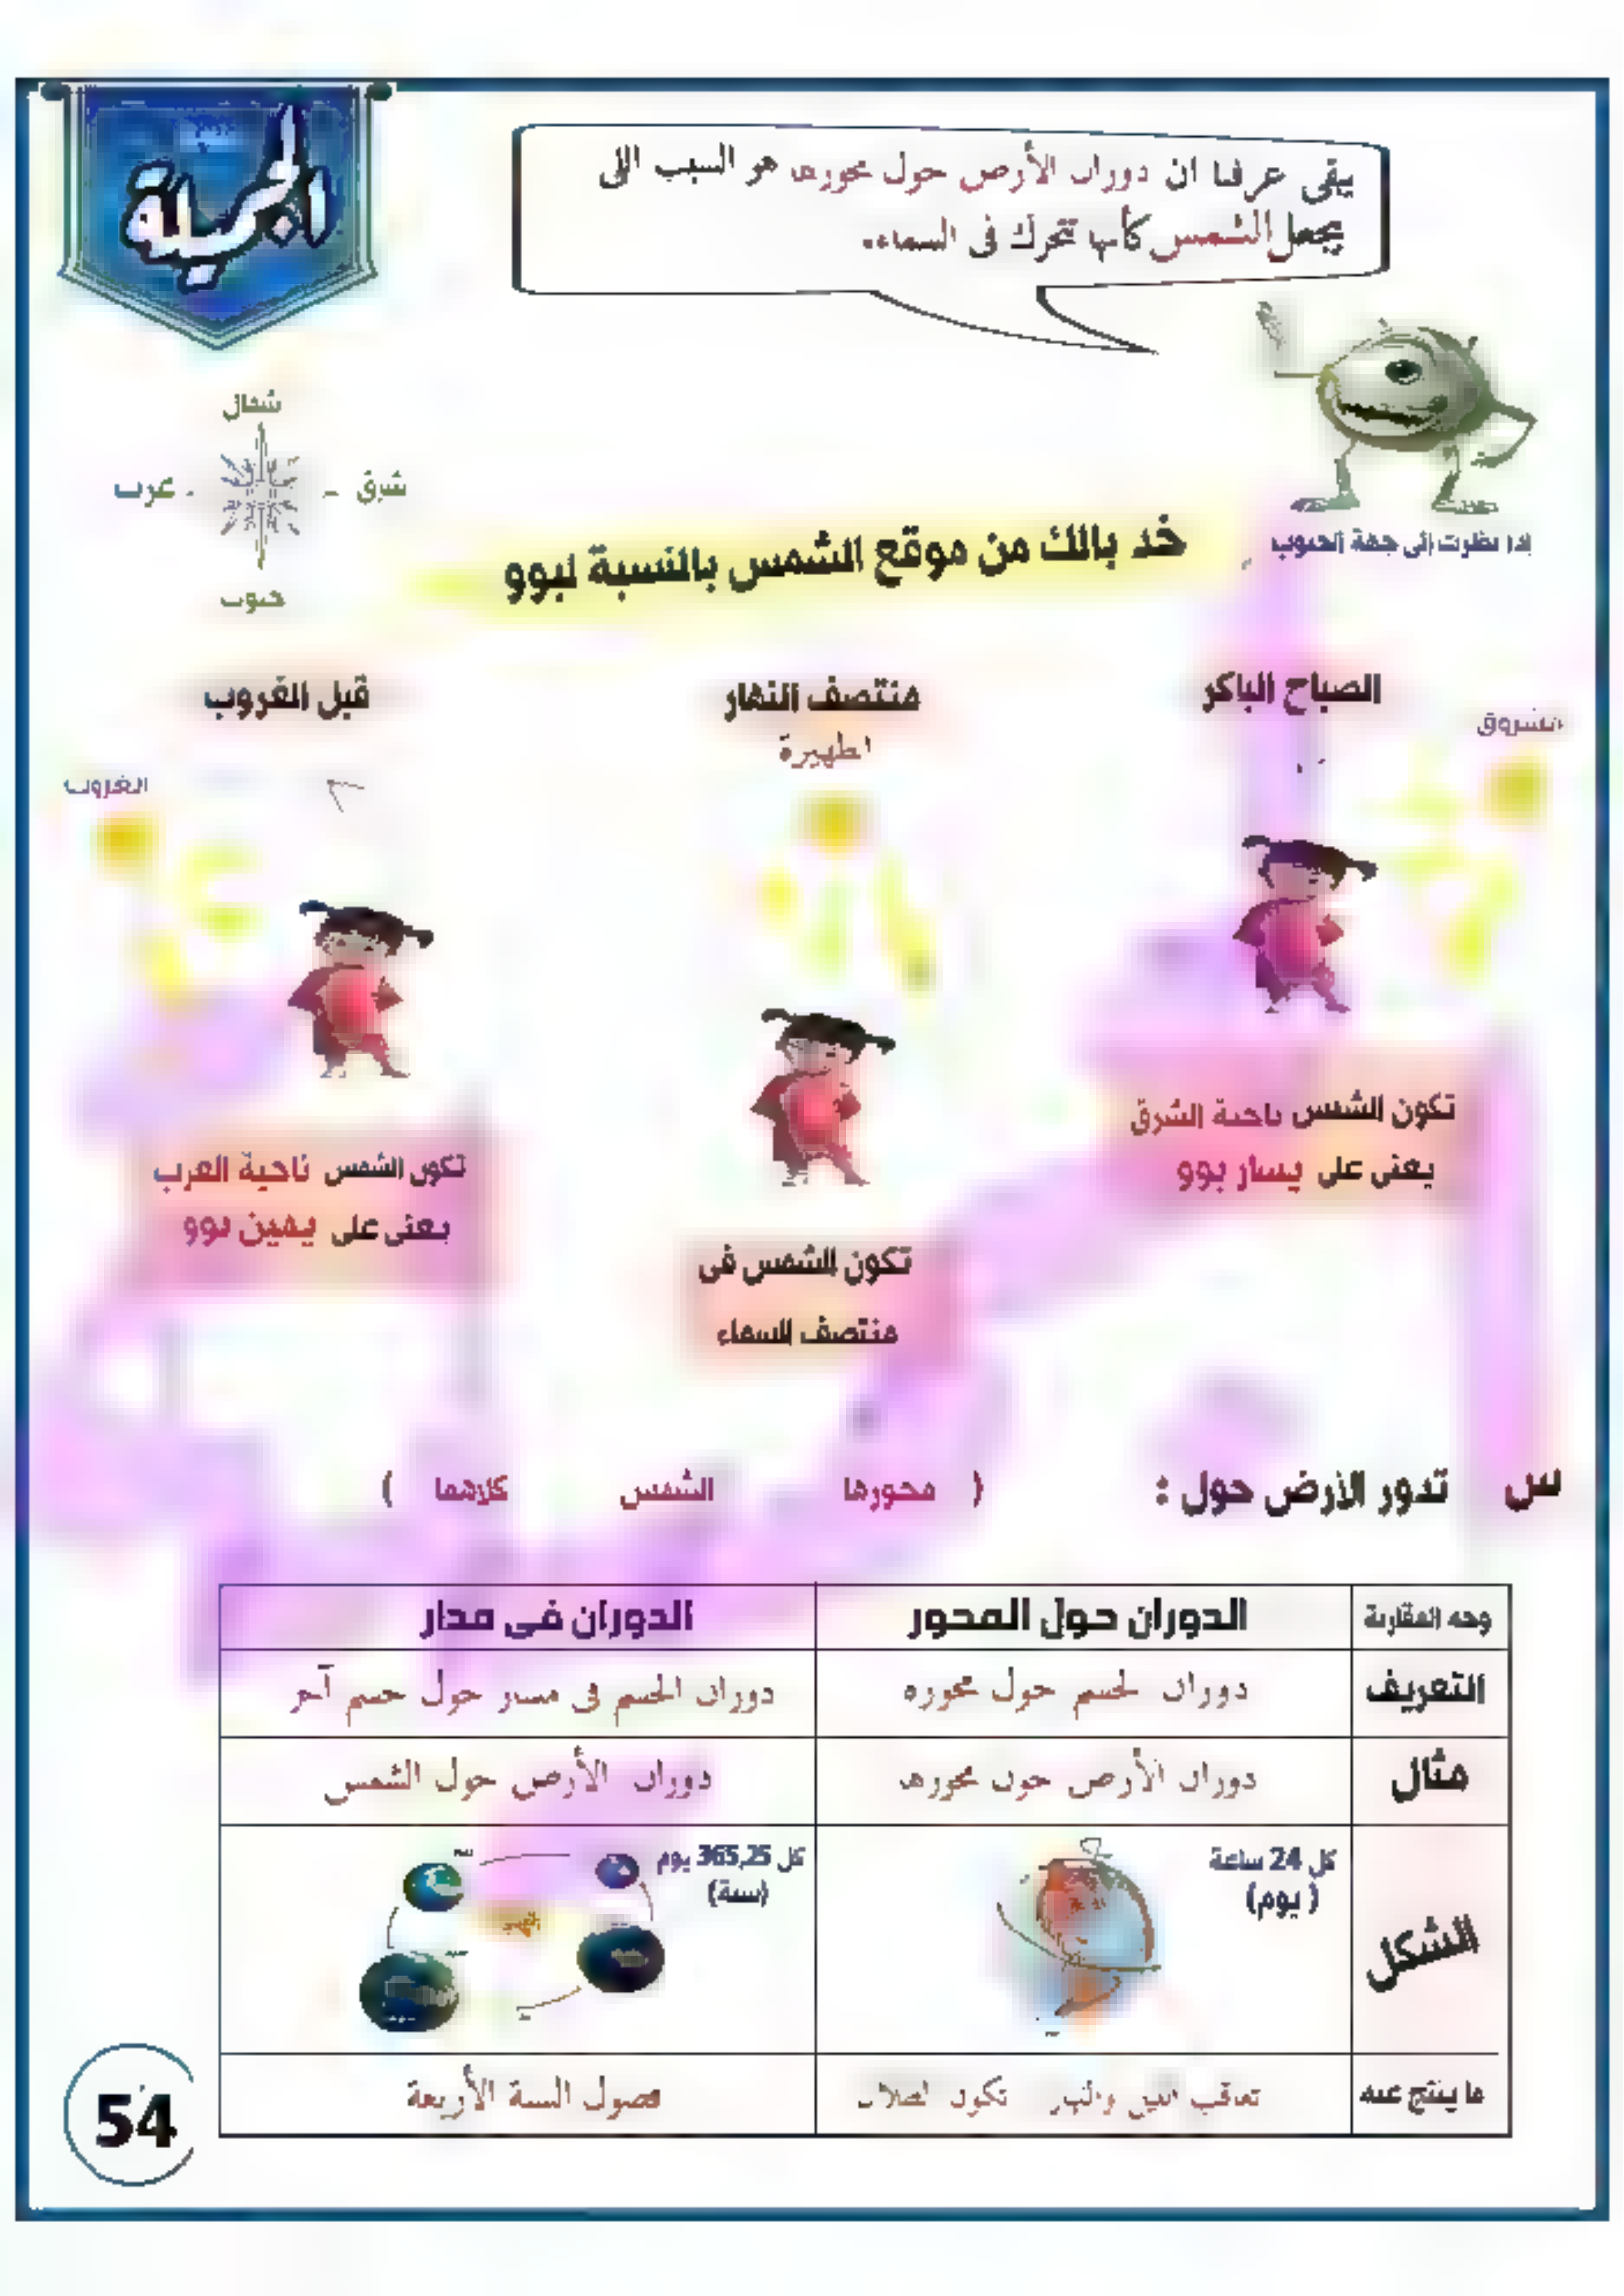 الجميلة
يبقى عرفنا ان دوران الأرض حول محورها هو السبب اللى
يجعل الشمس كأنها تتحرك فى السماء.
شمال
شرق
غرب
جنوب
إذا نظرت إلى جهة الجنوب
خد بالك من موقع الشمس بالنسبة لبوو
الصباح الباكر
الشروق
منتصف النهار
الظهيرة
قبل الغروب
الغروب
تكون الشمس ناحية الشرق
يعنى على يسار بوو
تكون الشمس فى
منتصف السماء
تكون الشمس ناحية الغرب
يعنى على يمين بوو
س تدور الأرض حول : ( محورها الشمس كلاهما )
وجه المقارنة الدوران حول المحور الدوران فى مدار
التعريف دوران الجسم حول محوره دوران الجسم فى مسار حول جسم آخر
مثال دوران الأرض حول محورها دوران الأرض حول الشمس
الشكل
كل 24 ساعة
( يوم)
كل 365,25 يوم
(سنة)
ما ينتج عنه تعاقب الليل والنهار تكون الظلال فصول السنة الأربعة
54